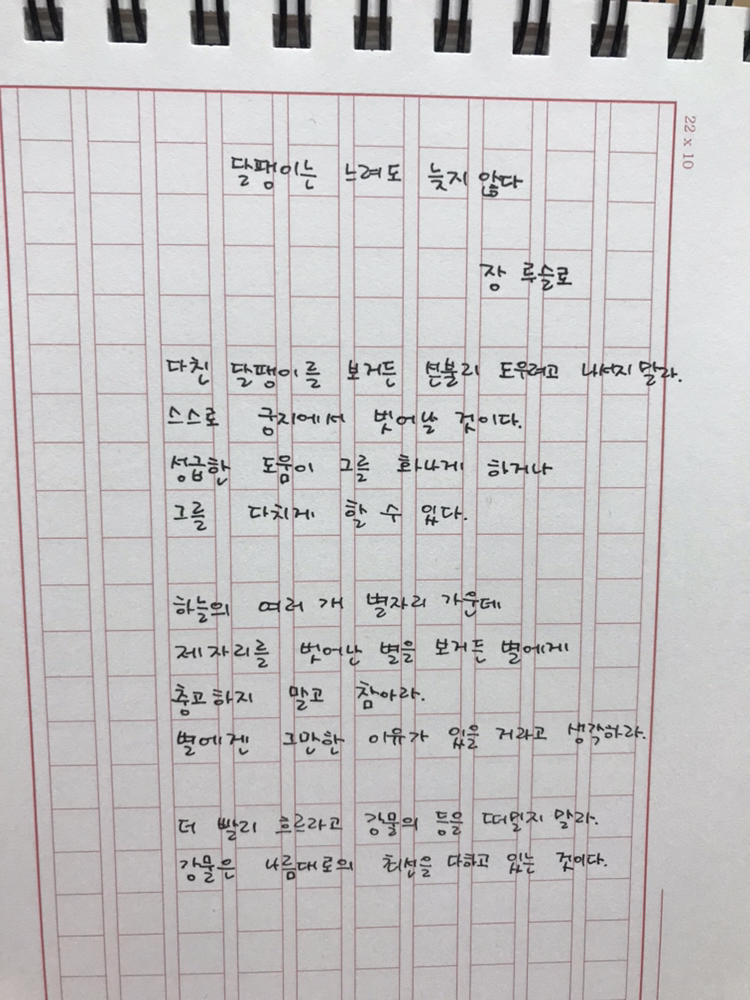 22 x 10
달팽이는 느려도 늦지 않다
장 루슬로
다친 달팽이를 보거든 섣불리 도우려고 나서지 말라.
스스로 궁지에서 벗어날 것이다.
성급한 도움이 그를 화나게 하거나
그를 다치게 할 수 있다.
하늘의 여러 개 별자리 가운데
제자리를 벗어난 별을 보거든 별에게
충고하지 말고 참아라.
별에겐 그만한 이유가 있을 거라고 생각하라.
더 빨리 흐르라고 강물의 등을 떠밀지 말라.
강물은 나름대로의 최선을 다하고 있는 것이다.